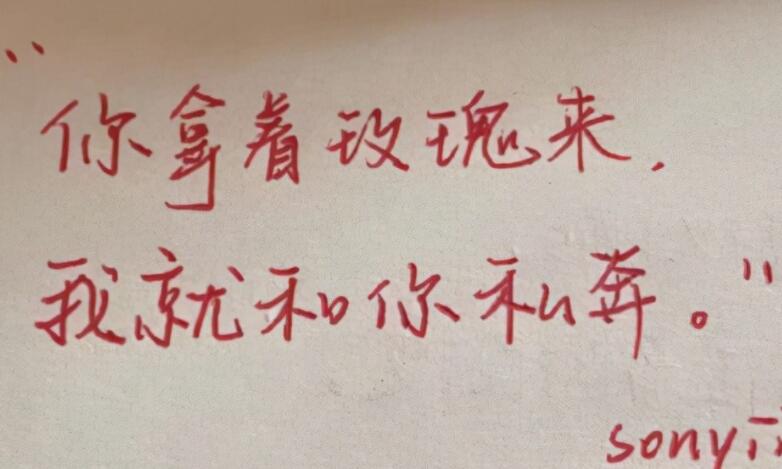 "你拿着玫瑰来,
我就和你私奔。"